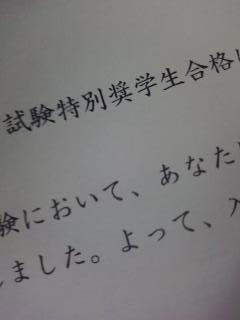 試験特別奨学生合格
験において、あなた
しました。よって、入